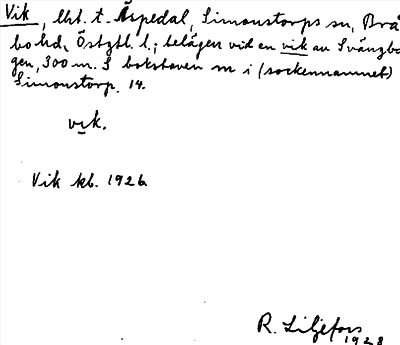 Vik, lht. t. Åspedal, Simonstorps sn, Brå
bo hd, Östgtl. l.; belägen vid en vik av Svängbo
gen, 300 m. S bokstaven m i (sockennamnet)
Simonstorp. 14.
vik.
Vik kb. 1926
R. Liljefors
1928